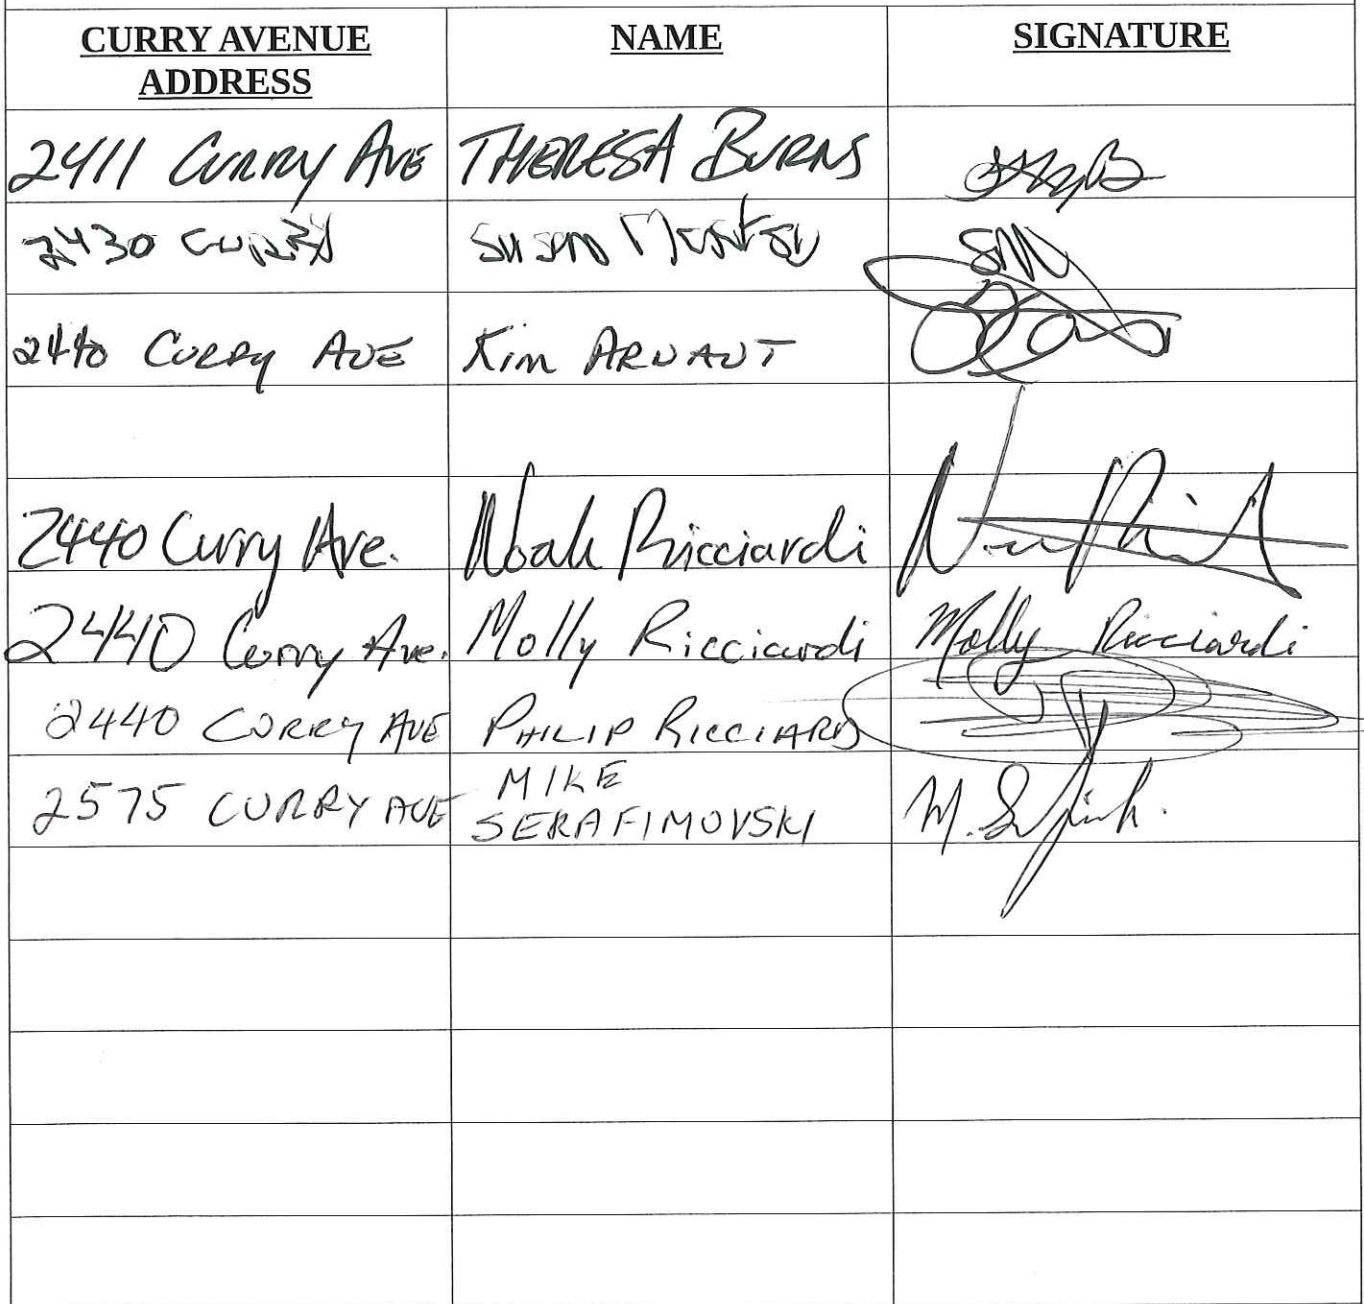 CURRY AVENUE
ADDRESS
NAME
SIGNATURE
2411 CURRY AVE THERESA BURNS
2430 CURRY Susan
2440 CURRY AVE Kim ARNAUT
2440 Curry Ave. Noah Ricciardi
2440 Curry Ave. Molly Ricciardi Molly Ricciardi
2440 CURRY AVE PHILIP RICCIARDI
2575 CURRY AVE MIKE
SERAFIMOVSKI